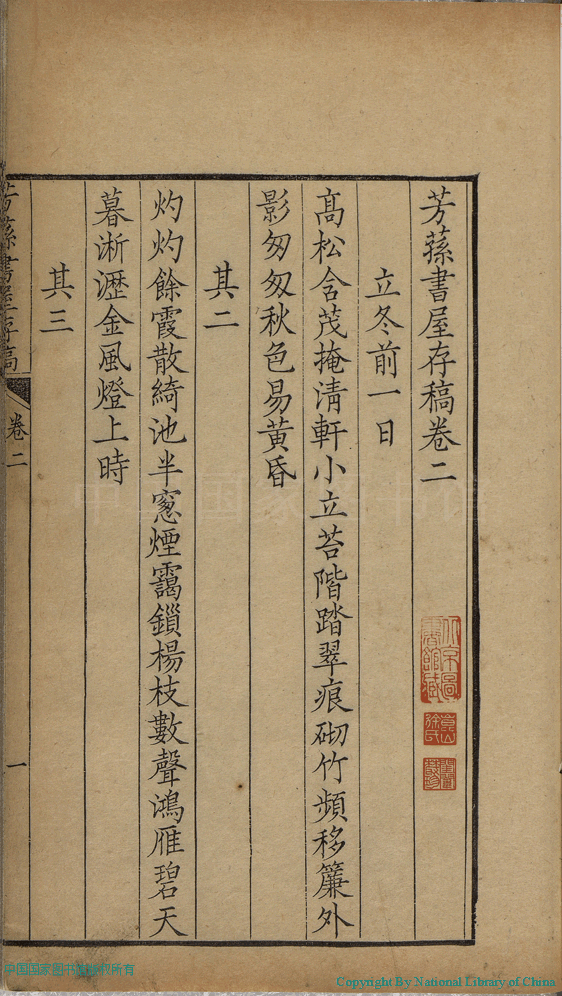 芳蓀書屋存稿卷二
立冬前一日
髙松含茂掩淸軒小立苔階踏翠痕砌竹頻移簾外
影匆匆秋色易黃昏
其二
灼灼餘霞散綺池半窻煙靄鎖楊枝數聲鴻雁碧天
暮淅瀝金風燈上時
其三
芳蓀書屋存稿
卷二
一
北京圖書館藏
Copyright By National Library of China